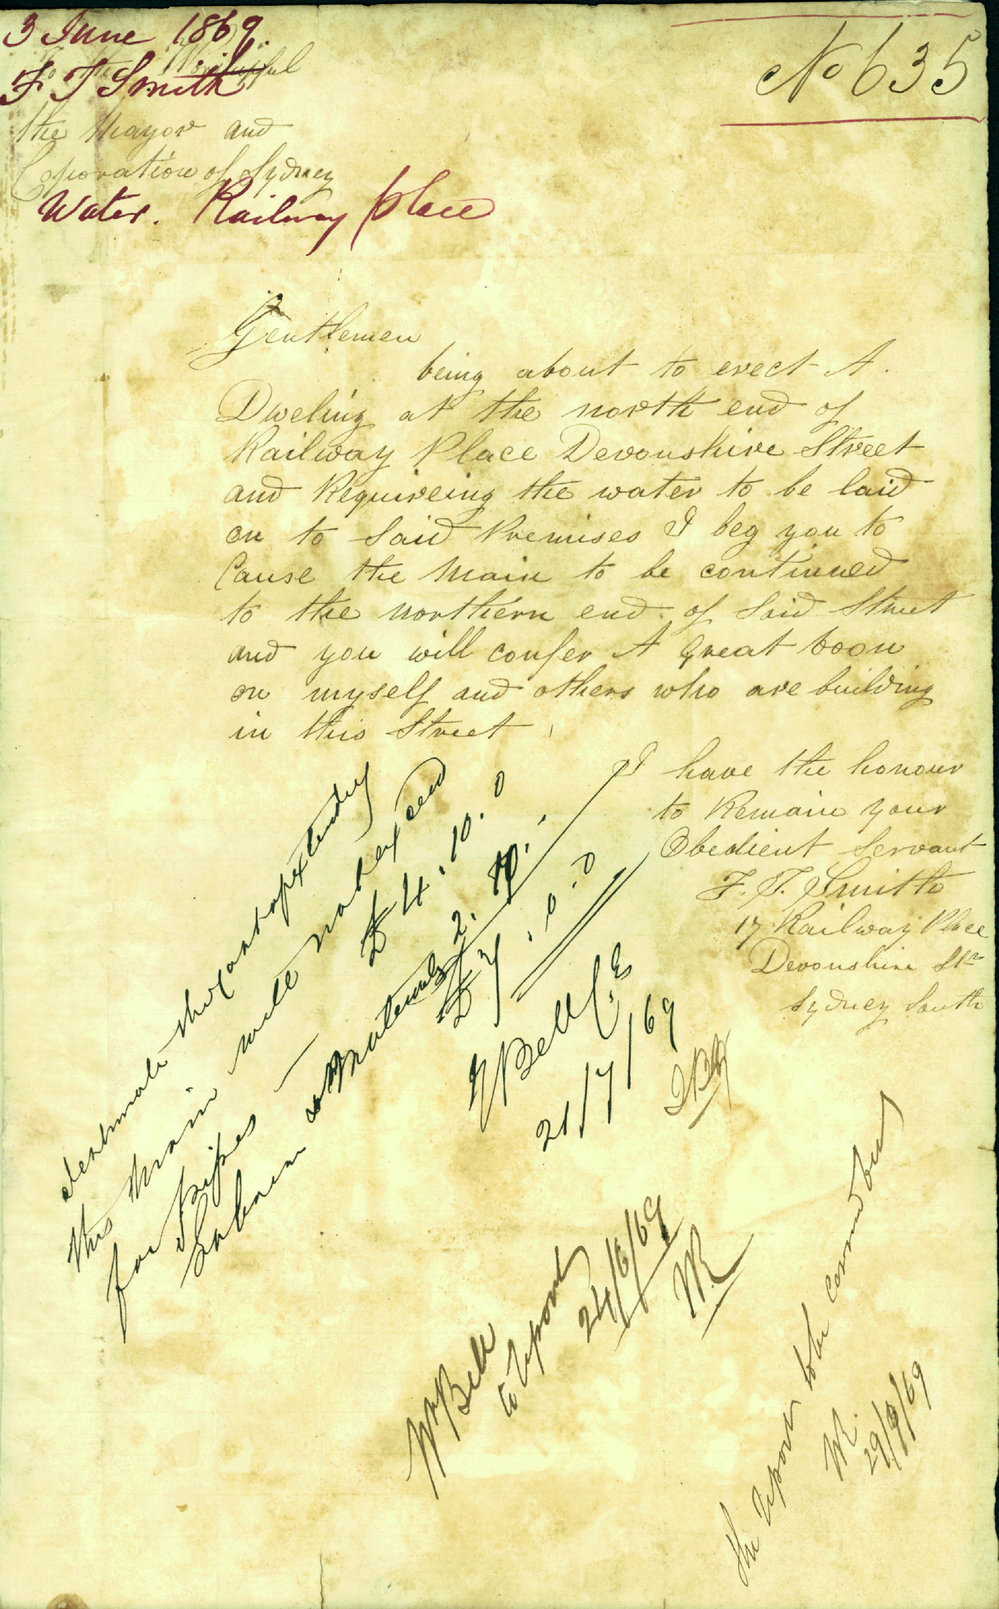 3 June 1869.
F J Smith
Water. Railway place
No 635
To the Worshipful
the Mayor and
Coporation of Sydney
Gentlemen
being about to erect A.
Dweling at the north end of
Railway Place Devonshire Street
and Requireing the water to be laid
on to said Premises I beg you to
Cause the Main to be continued
to the northern end of said Street
and you will confer A great boon
on myself and others who are building
in this Street
I have the honour
to Remain your
Obedient Servant
F. J. Smith
17 Railway Place
Devonshire St
Sydney South
I estimate the cost of extending
this main will not exceed
for pipes — £4.10.0
Labour & Materials 2.10.-
£7.0.0
Bell C.E
21/7/69
Mr Bell
to report
24/6/69
The report to be
29/9/69